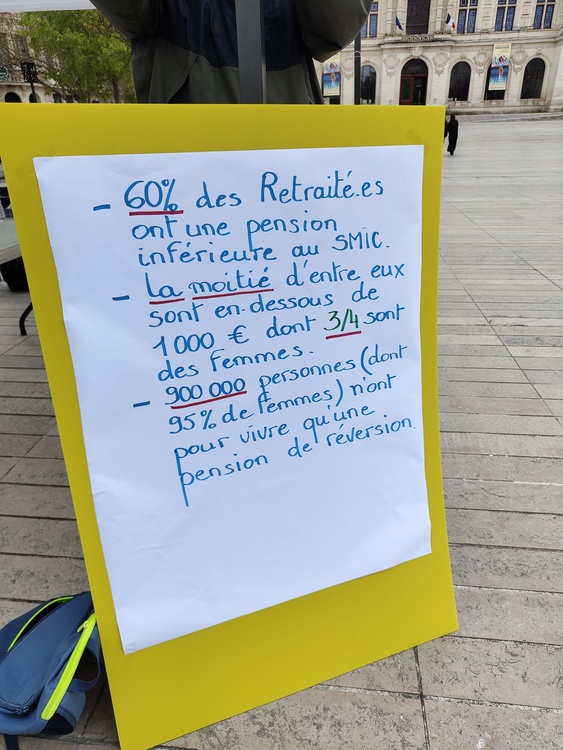 - 60% des Retraité.es
ont une pension
inférieure au SMIC.
- La moitié d'entre eux
sont en-dessous de
1000 € dont 3/4 sont
des femmes.
- 900 000 personnes (dont
95% de femmes) n'ont
pour vivre qu'une
pension de réversion.